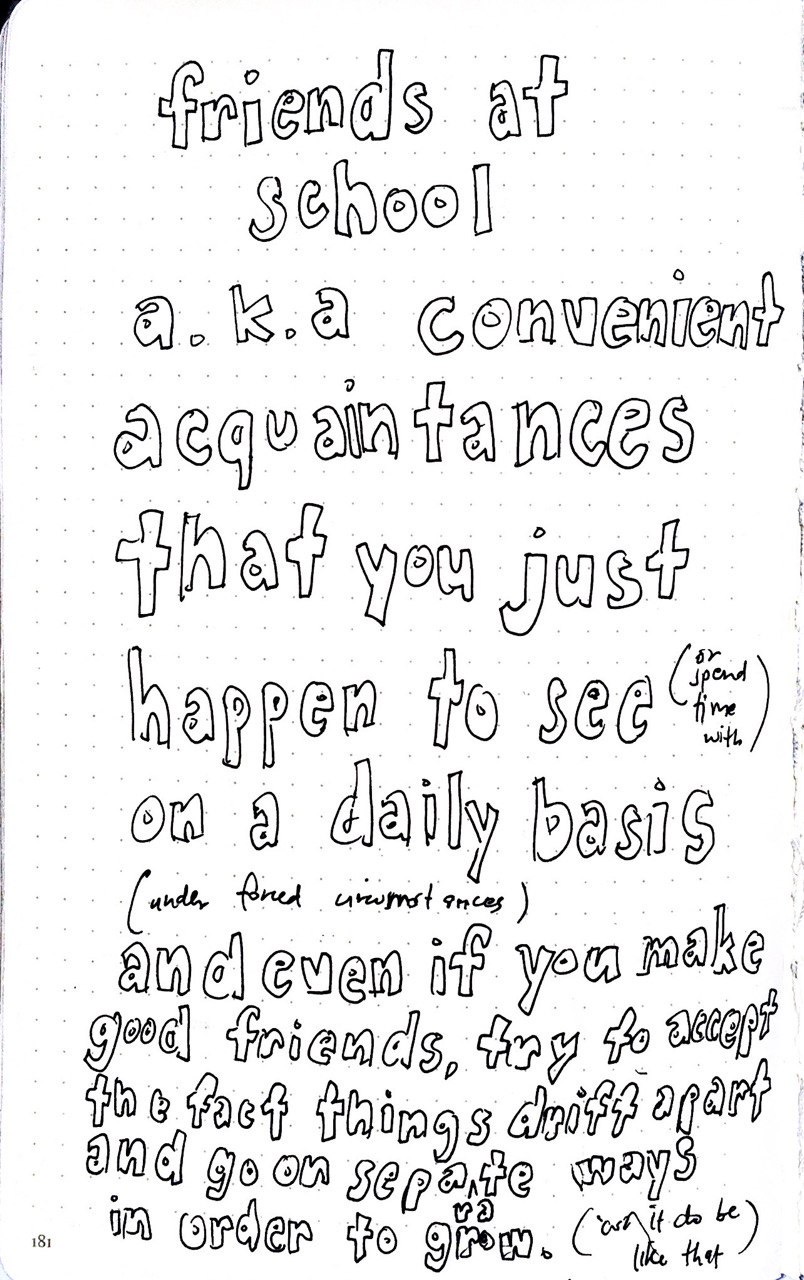 friends at
school
a.k.a convenient
acquaintances
that you just
happen to see (or spend time with)
on a daily basis
(under forced circumstances)
and even if you make
good friends, try to accept
the fact things drift apart
and go on separate ways
in order to grow. (cuz it do be
like that)
181